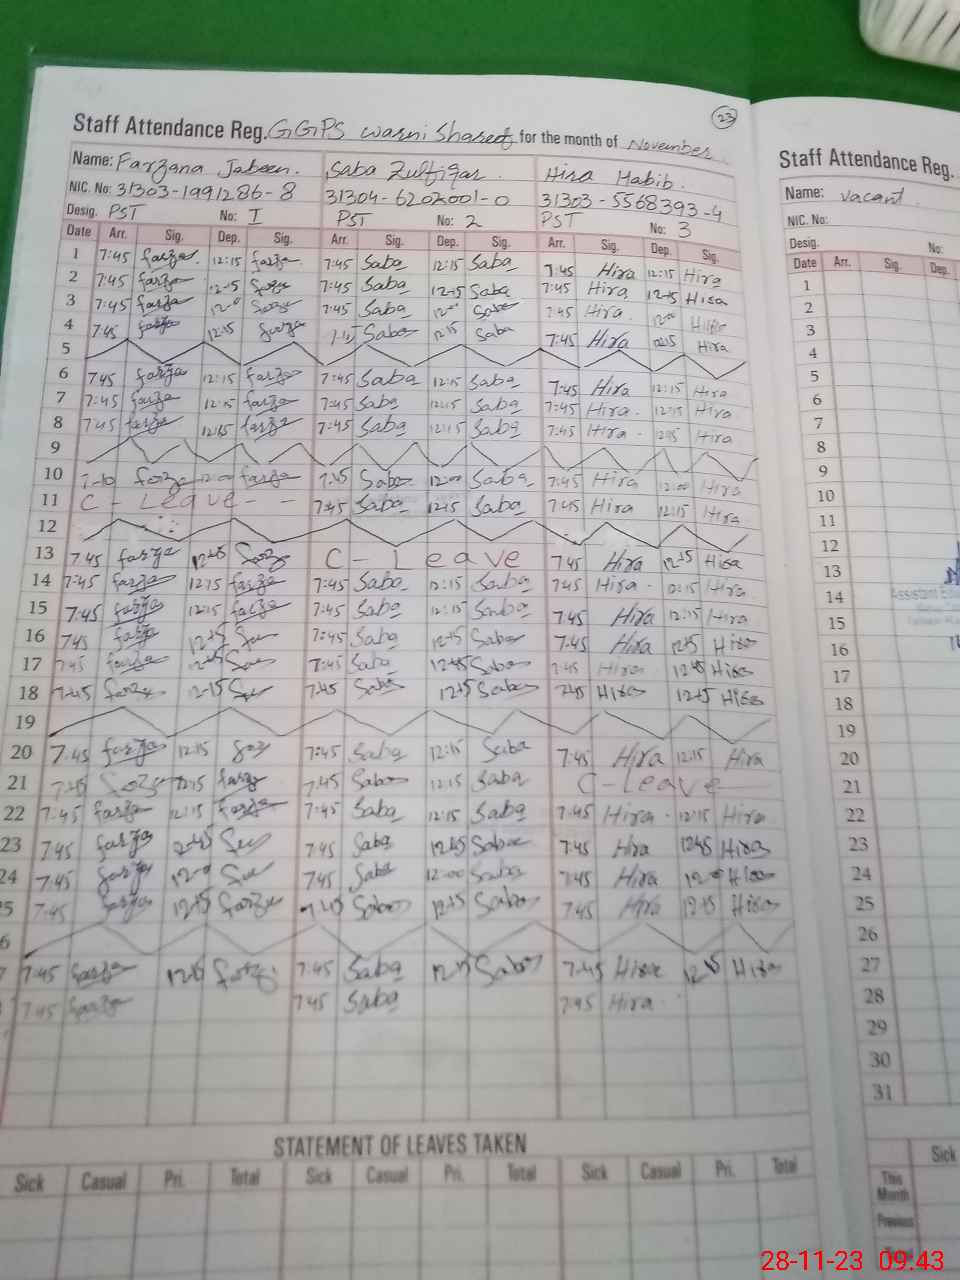 23
Staff Attendance Reg. GGPS warni Shareef for the month of November
Name: Farzana Jabeen. Saba Zulfiqar. Hira Habib.
NIC. No: 31303-1991286-8 31304-6202001-0 31303-5568393-4
Desig. PST No: I PST No: 2 PST No: 3
Date Arr. Sig. Dep. Sig. Arr. Sig. Dep. Sig. Arr. Sig. Dep. Sig.
1 7:45 farza. 12:15 farza. 7:45 Saba 12:15 Saba 7:45 Hira 12:15 Hira
2 7:45 farza 12:15 7:45 Saba 12:15 Saba 7:45 Hira 12:15 Hira
3 7:45 farza 7:45 Saba 12:00 Saba 7:45 Hira. 12:00 Hira
4 7:45 farza 12:15 farza Saba 12:15 Saba 7:45 Hira 12:15 Hira
5
6 7:45 farza 12:15 farza 7:45 Saba 12:15 Saba 7:45 Hira 12:15 Hira
7 7:45 farza 12:15 farza 7:45 Saba 12:15 Saba 7:45 Hira. 12:15 Hira
8 7:45 farza 12:15 farza 7:45 Saba 12:15 Saba 7:45 Hira - 12:15 Hira
9
10 farza 12:00 farza 7:45 Saba 12:00 Saba 7:45 Hira 12:00 Hira
11 C - Leave - - 7:45 Saba 12:15 Saba 7:45 Hira 12:15 Hira
12
13 7:45 farza 12:15 farza C - Leave 7:45 Hira 12:15 Hira
14 7:45 farza 12:15 farza 7:45 Saba 12:15 Saba 7:45 Hira - 12:15 Hira
15 7:45 farza 12:15 farza 7:45 Saba 12:15 Saba 7:45 Hira 12:15 Hira
16 7:45 farza 12:15 7:45 Saba 12:15 Saba 7:45 Hira 12:15 Hira
17 7:45 farza 7:45 Saba Saba 7:45 Hira Hira
18 7:45 farza 12:15 7:45 Saba 12:15 Saba 7:45 Hira 12:15 Hira
19
20 7:45 farza 12:15 7:45 Saba 12:15 Saba 7:45 Hira 12:15 Hira
21 12:15 farza 7:45 Saba 12:15 Saba C-Leave
22 7:45 farza 12:15 farza 7:45 Saba 12:15 Saba 7:45 Hira - 12:15 Hira
23 7:45 farza 7:45 Saba Saba 7:45 Hira Hira
24 7:45 farza 7:45 Saba 12:00 Saba 7:45 Hira Hira
25 7:45 farza 12:15 farza Saba 12:15 Saba 7:45 Hira 12:15 Hira
6
7 7:45 farza 7:45 Saba Saba 7:45 Hira Hira
7:45 farza 7:45 Saba 7:45 Hira
STATEMENT OF LEAVES TAKEN
Sick Casual Pri. Total Sick Casual Pri. Total Sick Casual Pri. Total
Staff Attendance Reg.
Name: vacant
NIC. No:
Desig. No:
Date Arr. Sig. Dep.
1
2
3
4
5
6
7
8
9
10
11
12
13
14
15
16
17
18
19
20
21
22
23
24
25
26
27
28
29
30
31
Sick
This Month
Previous
28-11-23 09:43